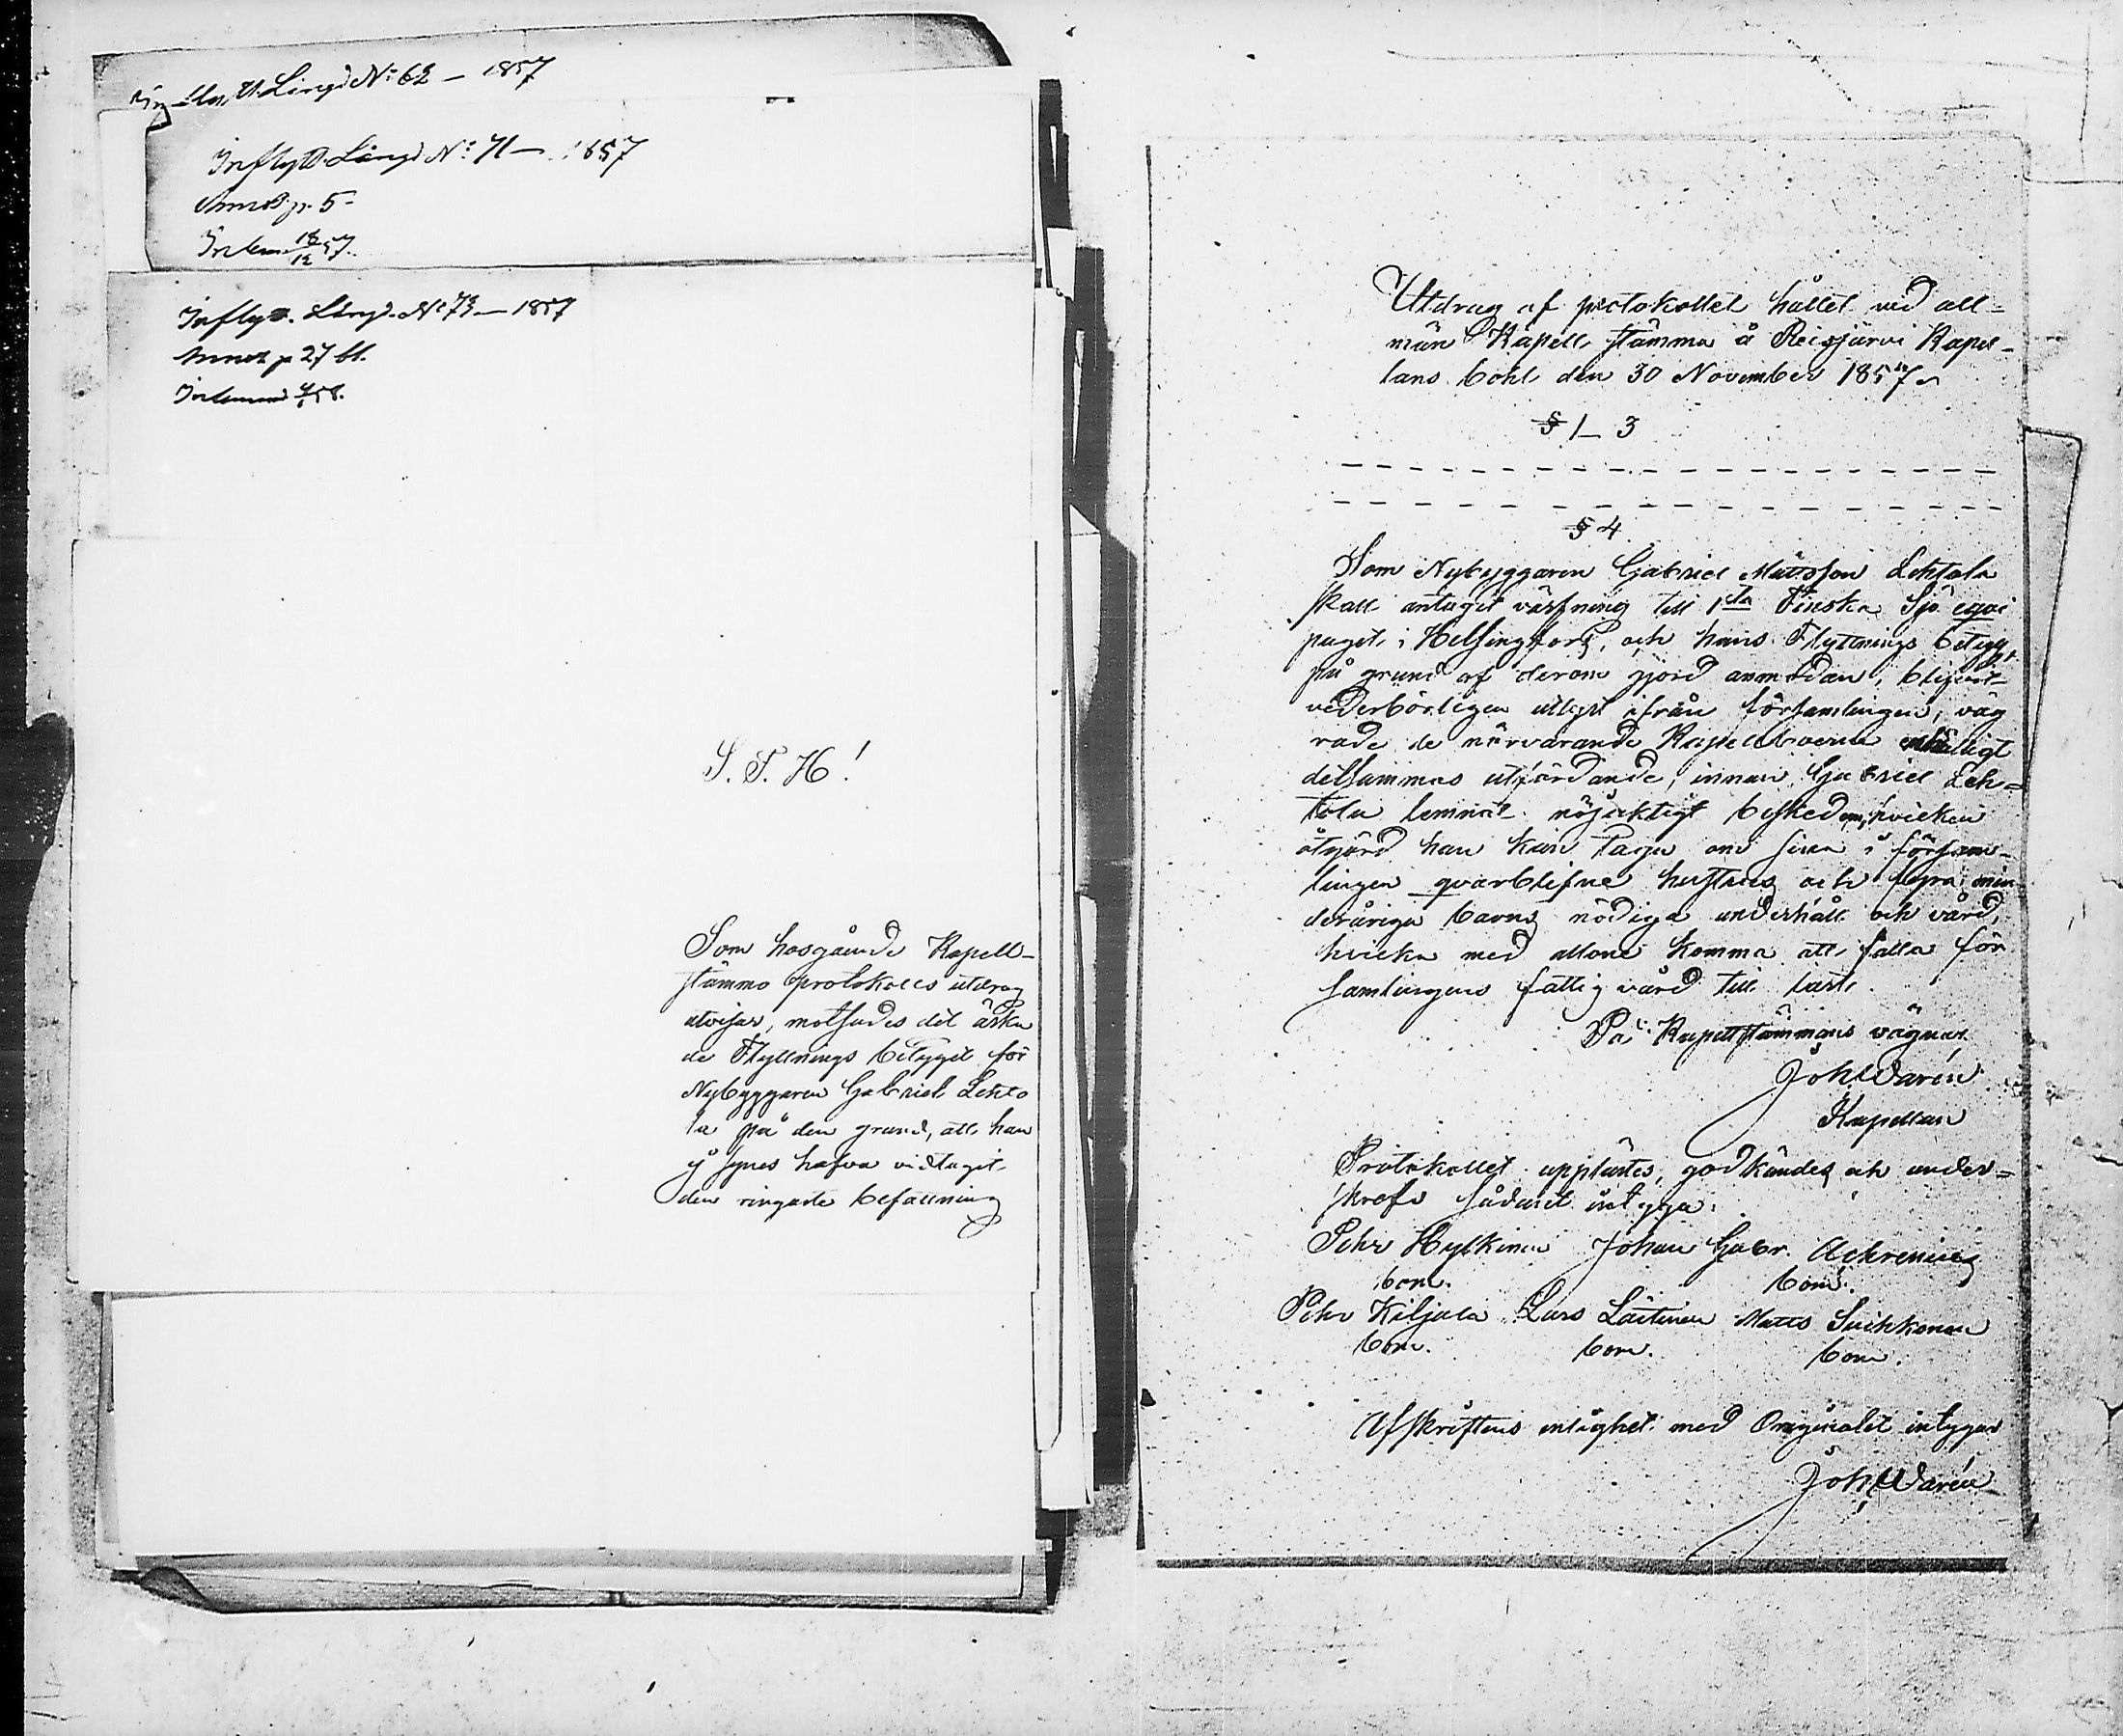 Inflytt. Längd № 62 – 1857
Inflytt. Längd № 71 – 1857
Annot p. 5
Inkom 18/12 57.
Inflytt. Längd. № 73 – 1857
Annot p 27 bl.
Inkommen 58.
S. T. H!
Som hosgående Kapell-
stämmo protokolls utdrag
utvisar, motsades det äska
de Flyttnings betyget för
Nybyggaren Gabriel Lehto
la på den grund, att han
ej synes hafva vidtagit
den ringaste befattning
Utdrag af protokollet hållet vid all-
män Kapell stämma å Reisjärvi Kapel-
lans bohl den 30 November 1857
§ 1_ 3
§ 4
Som Nybyggaren Gabriel Mattsson Lehtola
skall antagit värfning till 1sta Finska Sjö equi
paget i Helsingfors, och hans Flyttnings betyg,
på grund af derom gjord anmodan, blifvit
vederbörligen utlyst ifrån församlingen, väg
rade de närvarande Kapellboerne enhälligt
detsammas utfärdande, innan Gabriel Leh=
tola lemnat nöjaktigt besked om, hvilken
åtgärd han kan taga om sina i försam-
lingen qvarblifne hustrus och fyra min
deråriga barns nödiga underhåll och vård,
hvilka med allone komma att falla för
samlingens fattigvård till last.
På Kapellstämmans vägnar
Joh Warén
Kapellan
Protokollet upplästes, godkändes och under-
skrefs sådant intyga:
Pehr Hylkinen Johan Gabr. Ackrenius
bom. bom.
Pehr Kiljala Lars Laitinen Matts Suikkonen
bom. bom. bom.
Afskriftens enlighet med Originalet intygar
Joh Warén